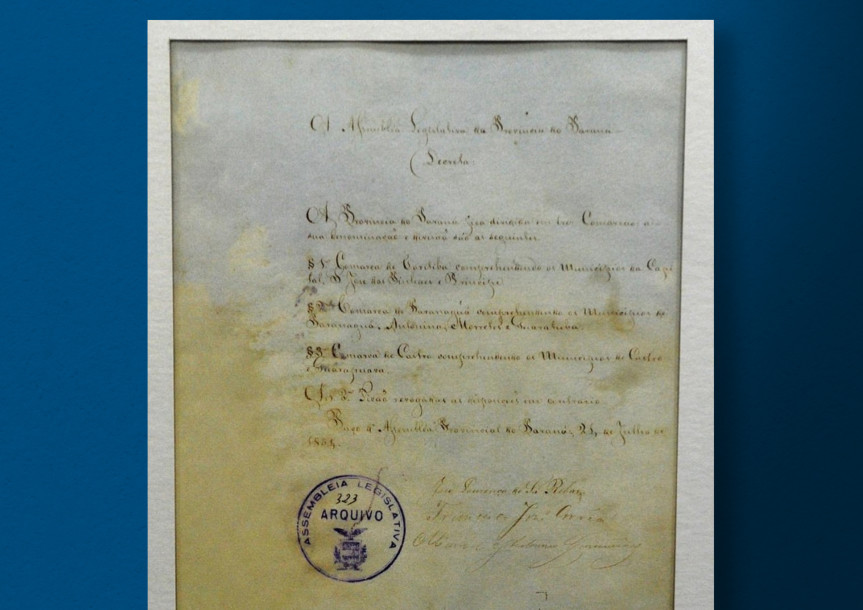 A Assemblea Legislativa da Provincia do Paraná
Decreta
A Provincia do Paraná fica dividida em tres Comarcas a
sua denominação e divisão são as seguintes
§ 1º Comarca de Coritiba comprehendendo os Municipios da Capi
tal, S José dos Pinhaes e Principe
§ 2º Comarca de Paranaguá comprehendendo os Municipios de
Paranaguá, Antonina, Morretes e Guaratuba
§ 3º Comarca de Castro comprehendendo os Municipios de Castro
e Guarapuava
Art 2º Ficão revogadas as disposições em contrario
Paço d'Assemblea Provincial do Paraná, 21, de Julho de
1854.
ASSEMBLEIA LEGISLATIVA
323
ARQUIVO
Francisco José Corrêa